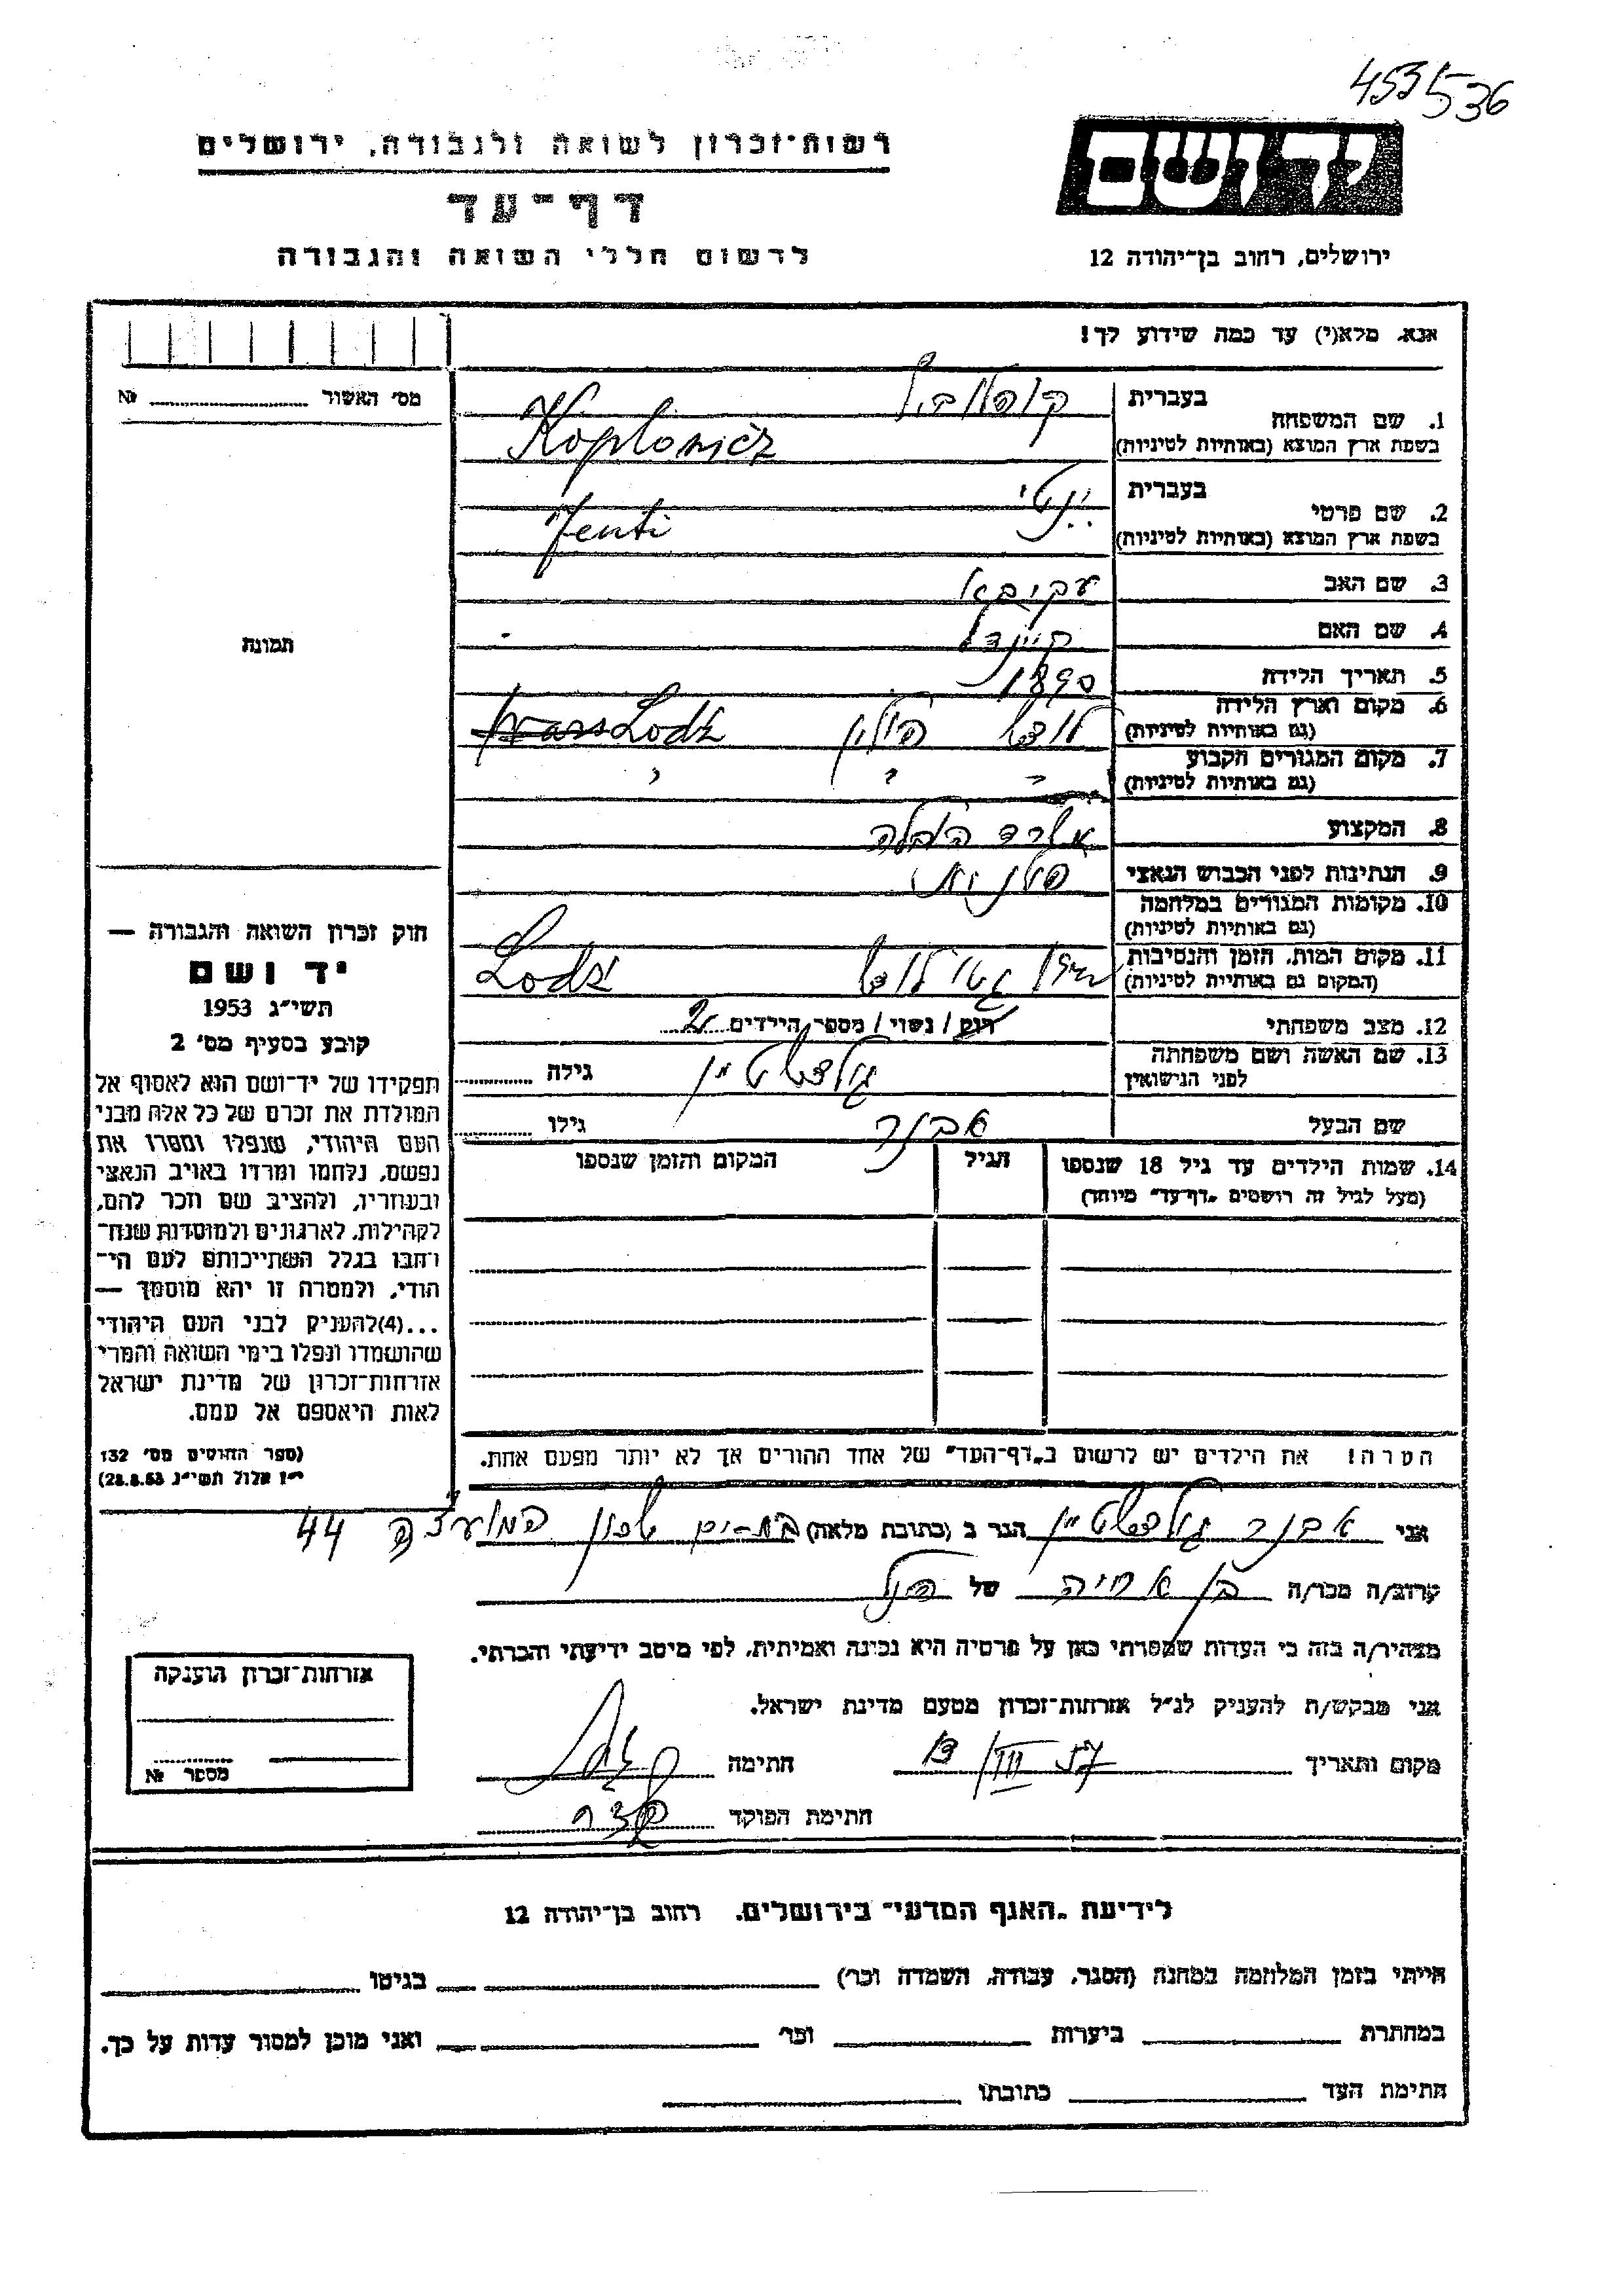 453536
יד ושם
רשות-זכרון לשואה ולגבורה, ירושלים
דף-עד
לרשום חללי השואה והגבורה
ירושלים, רחוב בן-יהודה 12
אנא, מלא(י) עד כמה שידוע לך!
1. שם המשפחה
בעברית קופלוביץ
בשפת ארץ המוצא (באותיות לטיניות) Koplowicz
2. שם פרטי
בעברית ינטי
בשפת ארץ המוצא (באותיות לטיניות) Jenti
3. שם האב עקיבא
4. שם האם
5. תאריך הלידה 1890
6. מקום וארץ הלידה (גם באותיות לטיניות) לודז' פולין Lodz
7. מקום המגורים הקבוע (גם באותיות לטיניות) " " "
8. המקצוע משרד הובלה
9. הנתינות לפני הכבוש הנאצי פולנית
10. מקומות המגורים במלחמה (גם באותיות לטיניות)
11. מקום המות, הזמן והנסיבות (המקום גם באותיות לטיניות) גטו לודז' Lodz
12. מצב משפחתי רוק / נשוי / מספר הילדים 2
13. שם האשה ושם משפחתה לפני הנישואין גולדשטיין גילה
שם הבעל אבנר גילו
14. שמות הילדים עד גיל 18 שנספו (מעל לגיל זה רושמים "דף-עד" מיוחד) הגיל המקום והזמן שנספו
הערה! את הילדים יש לרשום ב"דף-העד" של אחד ההורים אך לא יותר מפעם אחת.
מס' האשור №
תמונה
חוק זכרון השואה והגבורה —
יד ושם
תשי"ג 1953
קובע בסעיף מס' 2
תפקידו של יד-ושם הוא לאסוף אל
המולדת את זכרם של כל אלה מבני
העם היהודי, שנפלו ומסרו את
נפשם, נלחמו ומרדו באויב הנאצי
ובעוזריו, ולהציב שם וזכר להם,
לקהילות, לארגונים ולמוסדות שנח-
רבו בגלל השתייכותם לעם הי-
הודי, ולמטרה זו יהא מוסמך —
...(4)להעניק לבני העם היהודי
שהושמדו ונפלו בימי השואה והמרי
אזרחות-זכרון של מדינת ישראל
לאות היאספם אל עמם.
(ספר החוקים מס' 132
י"ז אלול תשי"ג 28.8.53)
אני אבנר גולדשטיין הגר ב (כתובת מלאה) בת-ים שכון המועצה 44
קרוב/ה מכר/ה בן אחיה של הנ"ל
מצהיר/ה בזה כי העדות שמסרתי כאן על פרטיה היא נכונה ואמיתית, לפי מיטב ידיעתי והכרתי.
אני מבקש/ת להעניק לנ"ל אזרחות-זכרון מטעם מדינת ישראל.
מקום ותאריך 13/III 57 חתימה
חתימת הפוקד
אזרחות-זכרון הוענקה
מספר №
לידיעת "האגף המדעי" בירושלים, רחוב בן-יהודה 12
הייתי בזמן המלחמה במחנה (הסגר, עבודה, השמדה וכו') בגיטו
במחתרת ביערות וכו' ואני מוכן למסור עדות על כך.
חתימת העד כתובתו